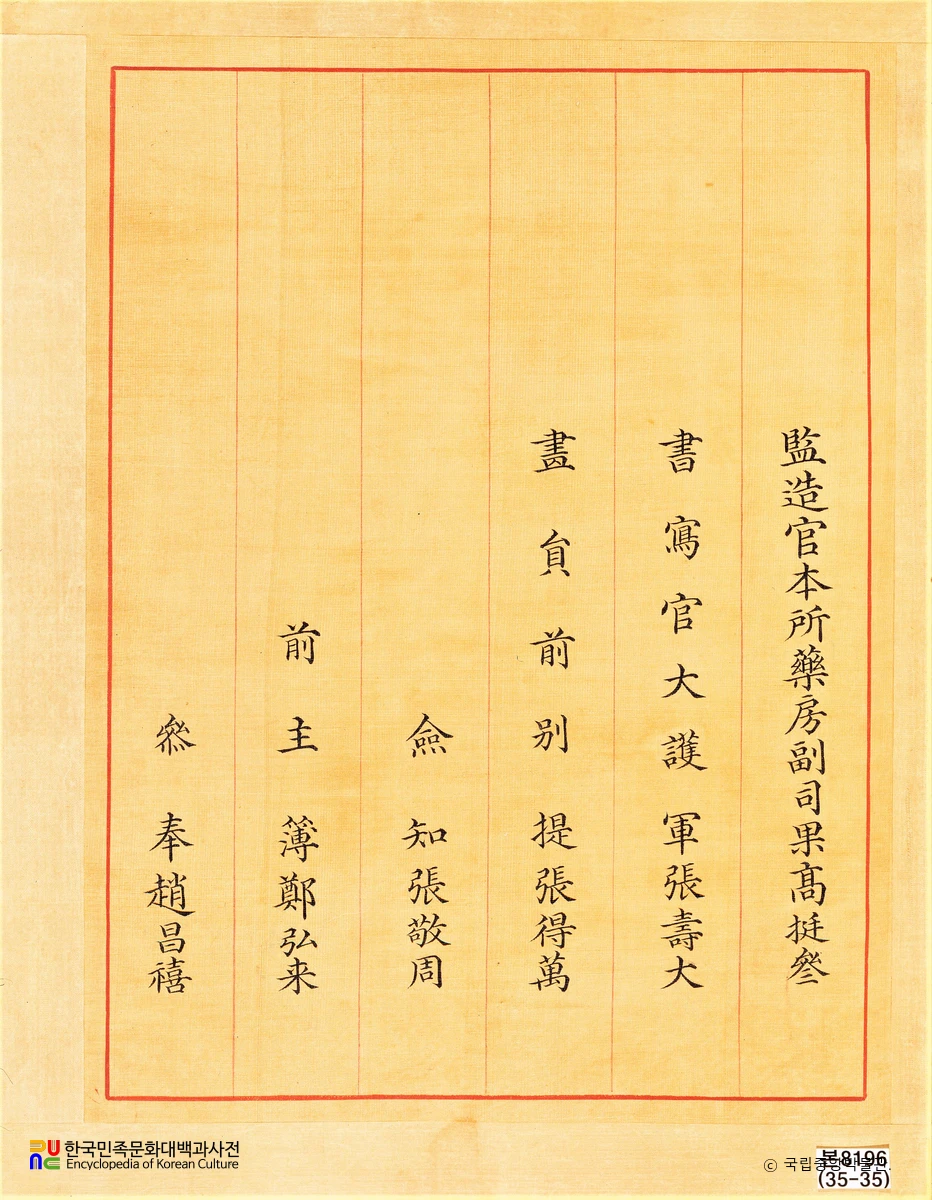 監造官本所藥房副司果髙挺叅
書寫官大護軍張壽大
畫貟前别提張得萬
僉知張敬周
前主簿鄭弘来
叅奉趙昌禧
한국민족문화대백과사전
Encyclopedia of Korean Culture
© 국립중앙박물관
본8196
(35-35)